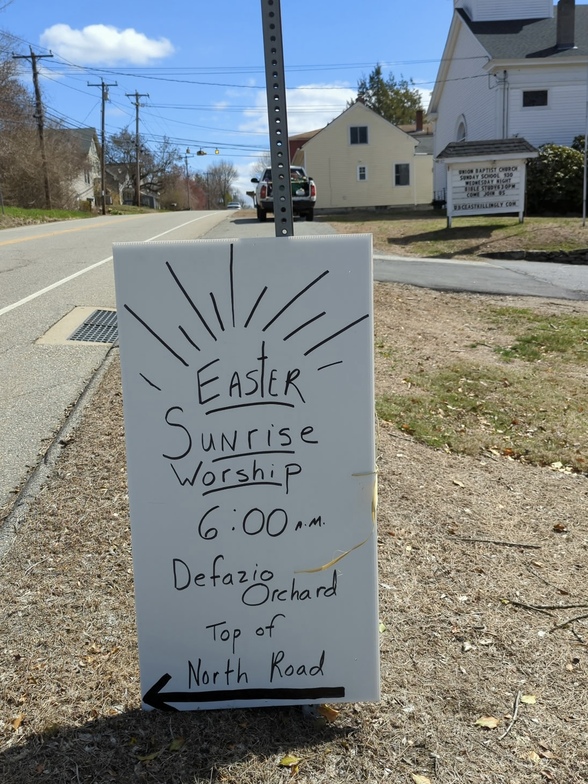 Easter
Sunrise
Worship
6:00 A.M.
Defazio
Orchard
Top of
North Road
UNION BAPTIST CHURCH
SUNDAY SCHOOL
WEDNESDAY NIGHT
BIBLE STUDY
COME JOIN US